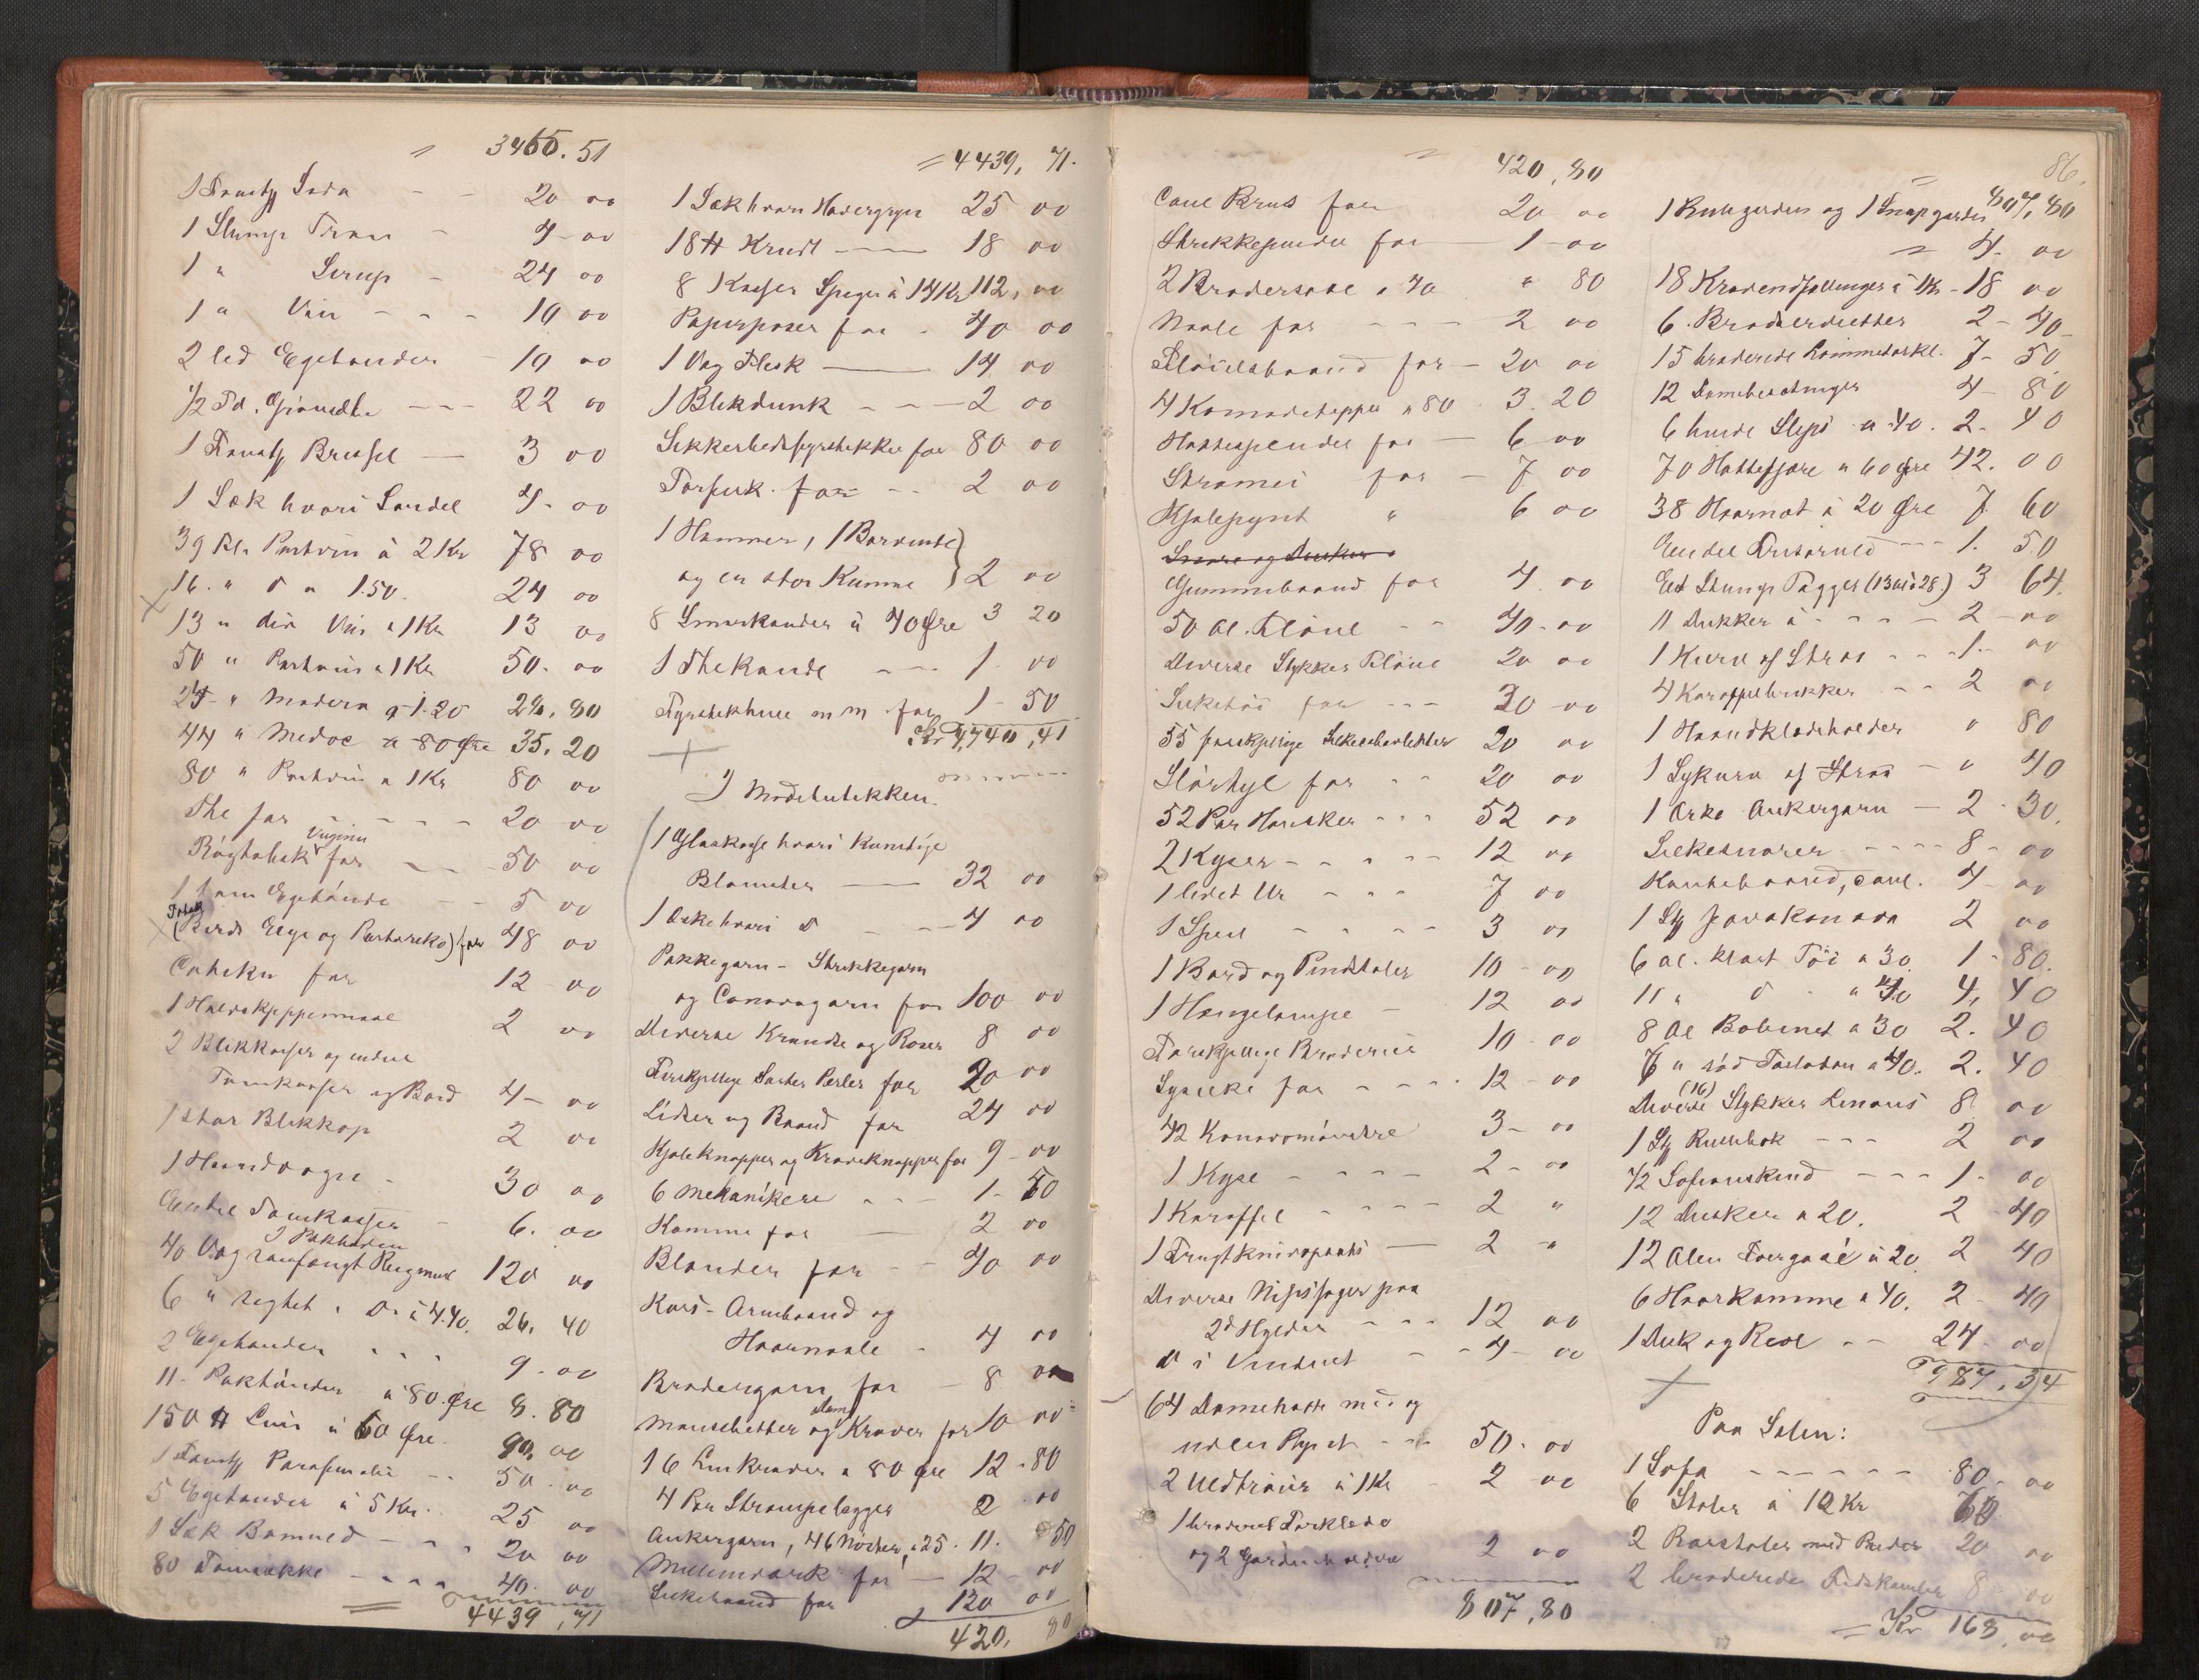 = 3465.51
1 Soda - - 20 00
1 Slump Tran - 4 00
1 " Sirup - 24 00
1 " Vin - - - 10 00
2 led Egetønder - 10 00
1/2 Td. - - - 22 00
1 Brusel — 3 00
1 Sæk hvori Sandel 4 - 00
39 Fl. Portvin à 2 Kr 78 00
16 " D " 1.50. 24 00
13 " div Vin à 1 Kr 13 00
50 " Portvin à 1 Kr 50. 00
24 " Madera à 1.20 28,80
44 " Medoc à 80 Øre 35.20
80 " Portvin à 1 Kr 80 00
The for - - - - 20 00
Virginia
for - - 50 00
1 tom Egetønde - - 5 00
Tobak
og Portoriko) for 48 00
for 12 - 00
2 00
2 Blikkasser og endel
Tomkasser og Bord 4 - 00
1 stor Blikkop 2 00
1 Haandvogn - 30 00
Endel Tomkasser - 6. 00
I Pakboden
40 Vog Rugmel 120 00
6 " sigtet " Do à 4.40. 26. 40
2 Egetønder - - - 9 - 00
11 - Paktønder à 80 Øre 8.80
150 ℔ à 60 Øre 90,00
1 Parafinolie - - 50 - 00
5 Egetønder à 5 Kr. 25 00
1 Sæk Bomuld - - - 20 00
80 Tomsække - - - 40. 00
4439,71
= 4439, 71.
1 Sæk hvori Havregryn 25 00
18 ℔ Krudt — 18 00
8 Kasser Spiger à 14 Kr 112, 00
Papirposer for - 40 00
1 Vog Flesk — 14 00
1 Blikdunk - - - 2 00
Sikkerhedsfyrstikker for 80 00
for - - 2 00
1 Hammer, 1
og en stor Kumme } 2 00
8 Smørkander à 40 Øre 3 20
1 Thekande - - - 1 - 00
m m for 1 - 50
Kr 4,740,41
I Modebutikken.
1 Glaskasse hvori Kunstige
Blomster — 32 00
1 Æske hvori D - - - 4 00
Pakkegarn - Strikkegarn
og Canavagarn for 100 00
Diverse Krandse og Roser 8 00
Forskjellige Sorter Perler for 20 00
Lidser og Baand for 24 00
Kjoleknapper og Kraveknapper for 9 - 00
6 Mekanikere - - - 1 - 50
Kamme for — 2 00
Blonder for - - 40 00
Kors - Armbaand og
Haarnaale - 4 00
Brodergarn for - 8 00
Manschetter og Dame Kraver for 10 00
16 Linkraver à 80 Øre 12 - 80
4 Par Strømpelægger 2 00
Ankergarn, 46 Nøster, à 25. 11. 50
for — 12 - 00
Silkebaand for 120 00
420, 80
= 420,80
for 20 00
Strikkepinder for 1 - 00
2 Brodersaxe à 40 " 80
Naale for - - - - 2 00
Fløielsbaand for - 20 00
4 Komodetepper à 80 3.20
Hattespender for - 6 00
Stramei for - 7 00
Kjolepynt " 6 00
Snore og Dusker
Gummibaand for 4 00
50 Al. Fløiel - - 40 - 00
Diverse Stykker Fløiel 20 00
Silketøi for - - - 30 - 00
55 forskjellige 20 00
Slørtyl for - - 20 00
52 Par Hansker - - - 52 00
2 Kyser - - - - - 12 00
1 lidet Ur - - - 7 00
1 Speil - - - - 3 00
1 Bord og Pindstoler 10 - 00
1 Hængelampe - 12 00
Forskjellige Broderier 10 - 00
Sysilke for - - - - 12 - 00
42 3 - 00
1 Kyse - - - - 2 - 00
1 Karaffel - - - - 2 "
1 — 2 - "
Diverse Nipssager paa
2d Hylder - - - 12 00
D i Vinduet - - 4 - 00
64 Damehatte med og
uden Pynt - - - 50 - 00
2 Uldtrøier à 1 Kr - 2 00
1 broderet Forklæde
og 2 Gardinholdere 2 00
807,80
86.
= 807,80
1 Rullgardin og 1
= 4. 00
18 à 1 Kr - 18 00
6 2 - 40
15 broderede Lommetørkl. 7 - 50
12 4 - 80
6 hvide Slips à 40. 2. 40
70 Hattefjære à 60 Øre 42. 00
38 Haarnæt à 20 Øre 7 60
Endel - - - 1. 50
Et Slump Pigger (13 al à 28.) 3 64.
11 Dukker à - - - - 2 - 00
1 Kurv af Straa - - - 1 - 00
4 Karaffelbrikker - - 2 00
1 Haandklædeholder " 80
1 Sykurv af Straa - " 40
1 Æske Ankergarn — 2 - 30.
Silkesnorer - - - - 8 - 00
4 - 00
1 St. 2 00
6 al. klart Tøi à 30 1 - 80.
11 " D - " 40 4, 40
8 Al Bobinet à 30 2. 40
6 " rød Tarlatan à 40. 2. 40
(16)
Diverse Stykker Linons 8 00
1 St. - - - 2 00
1/2 - - - 1 - 00
12 Dusker à 20. 2 - 40
12 Alen à 20 2 40
6 Haarkamme à 40. 2 - 40
1 Disk og Reol - - 24 - 00
987,34
Paa Salen:
1 Sofa - - - - - - 80 - 00
6 Stoler à 10 Kr 60
2 Rørstoler med Puder 20 00
2 broderede Fodskamler 8 - 00
= Kr 168,00